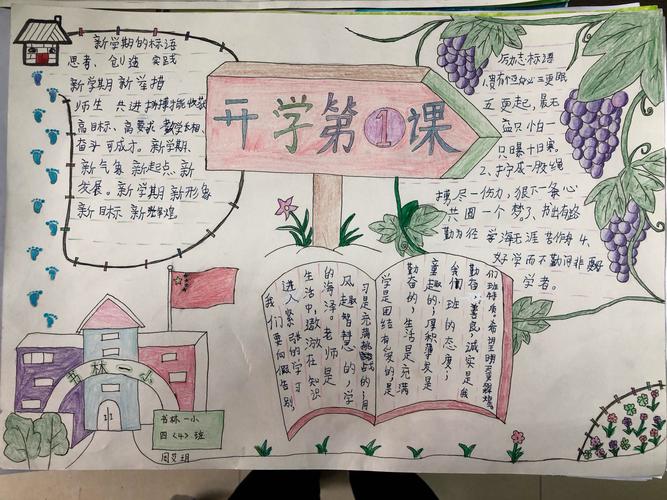 新学期的标语
思考、创造 实践
新学期 新举措
师生 共进 拼搏
高目标、高要求
奋斗 可成才。新学期、
新气象 新起点 新
发展。新学期 新形象
新目标 新辉煌
开学第1课
励志标语
1、贵有恒何必三更眠
五更起，最无
益只怕一
日曝十日寒。
2、拧成一股绳
搏尽一份力，狠下一条心
共圆一个梦。3、书山有路
勤为径 学海无涯苦作舟 4、
好学而不勤问非真
学者。
我们要向假告别
进入紧张的学习
生活中，遨游在知识
的海洋。老师是
风趣智慧的，学
习是充满挑战的，同
学是团结有爱的是
勤奋的，生活是充满
童趣的，厚积薄发是
我们班的态度，
勤奋、善良，诚实是我
们班特质。希望明天更辉煌
书林一小
书林一小
四〈4〉班